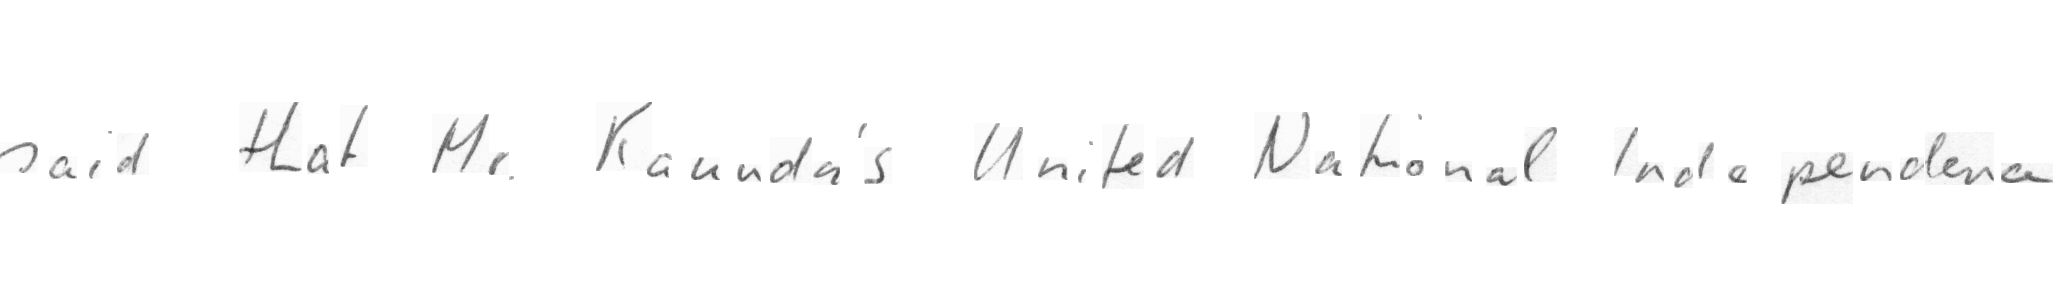 said that Mr. Kaunda's United National Independence